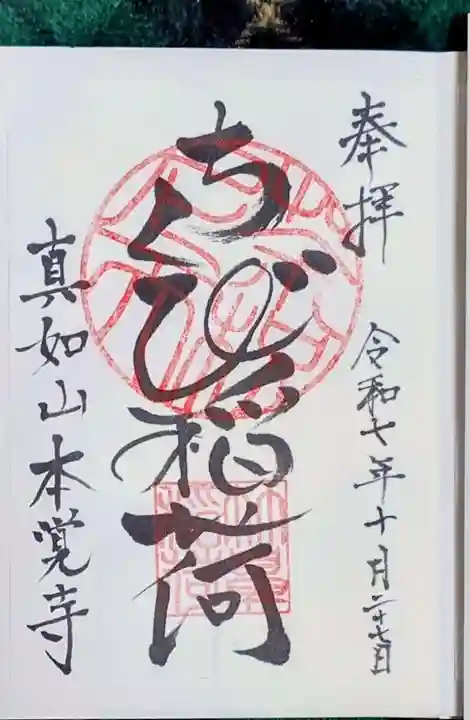 奉拝
令和七年十月二十七日
稲荷
真如山本覚寺